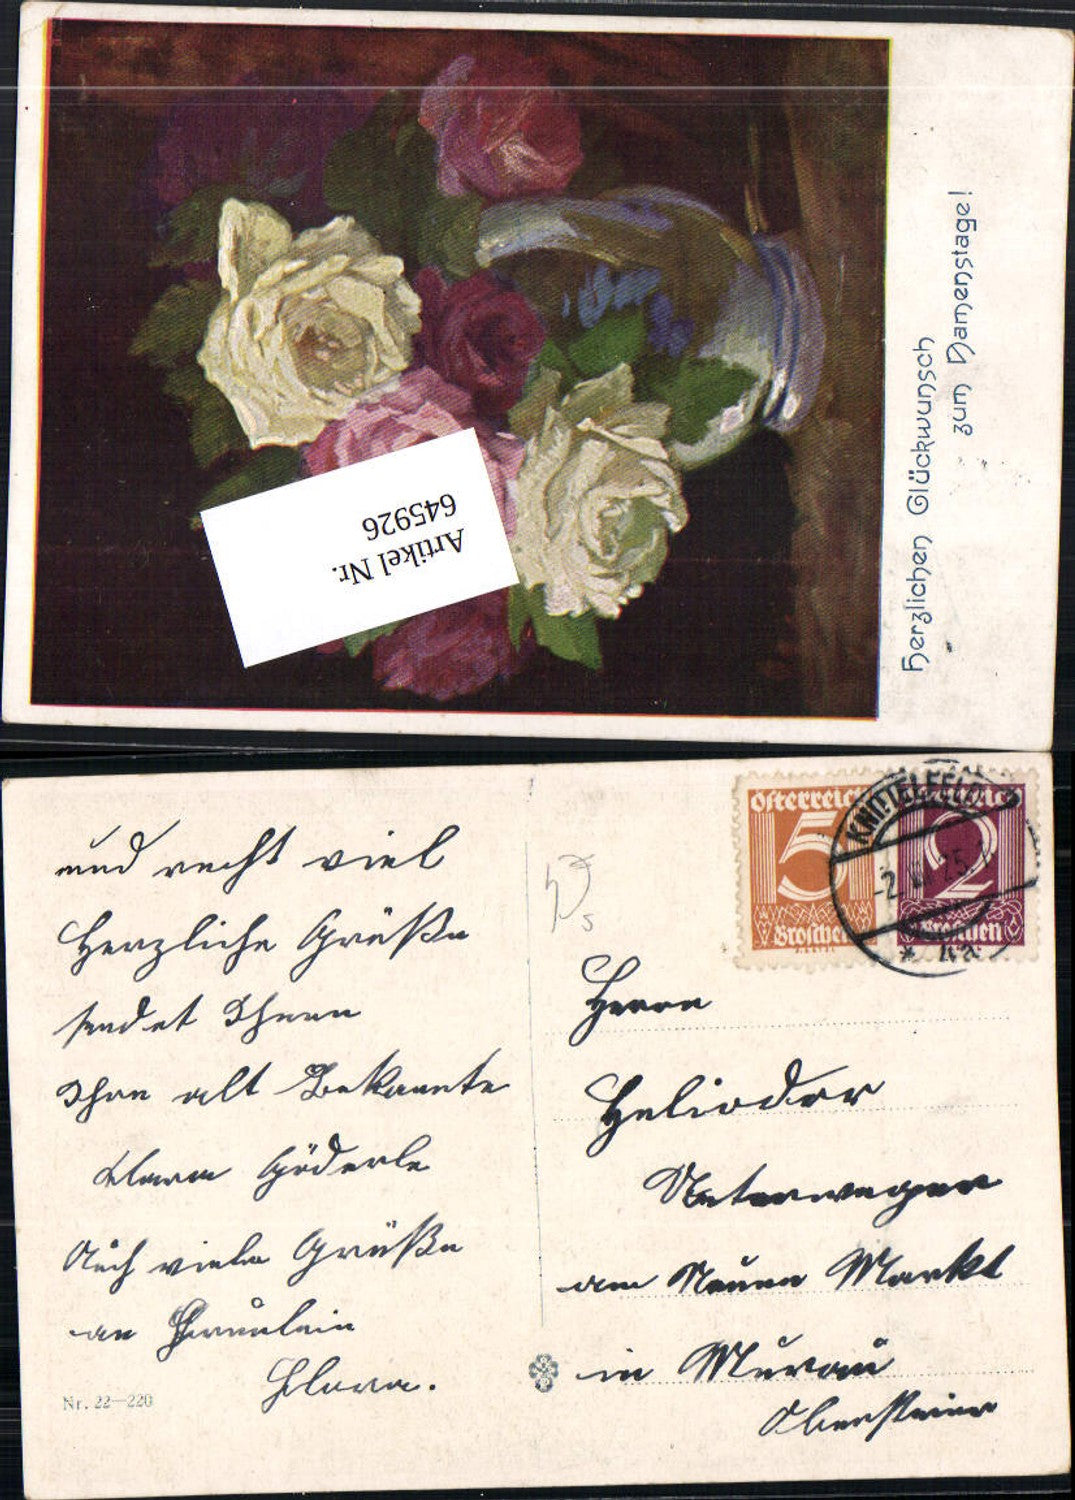 Herzlichen Glückwunsch
zum Namenstage!
Artikel Nr.
645926
und recht viel
Herzliche Grüße
sendet Ihnen
Ihre alt Bekannte
Klara Göderle
Auch viele Grüße
an Fräulein
Flora.
Nr. 22—220
Österreich
5
Groschen
2
Groschen
KNITTELFELD
Herrn
Heliodor
Unterweger
am Neuen Markt
in Murau
Obersteier